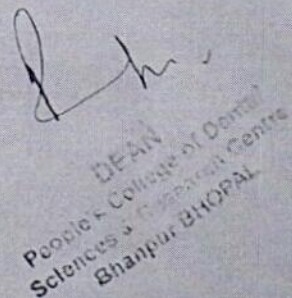 DEAN
People's College of Dental
Sciences & Research Centre
Bhanpur BHOPAL